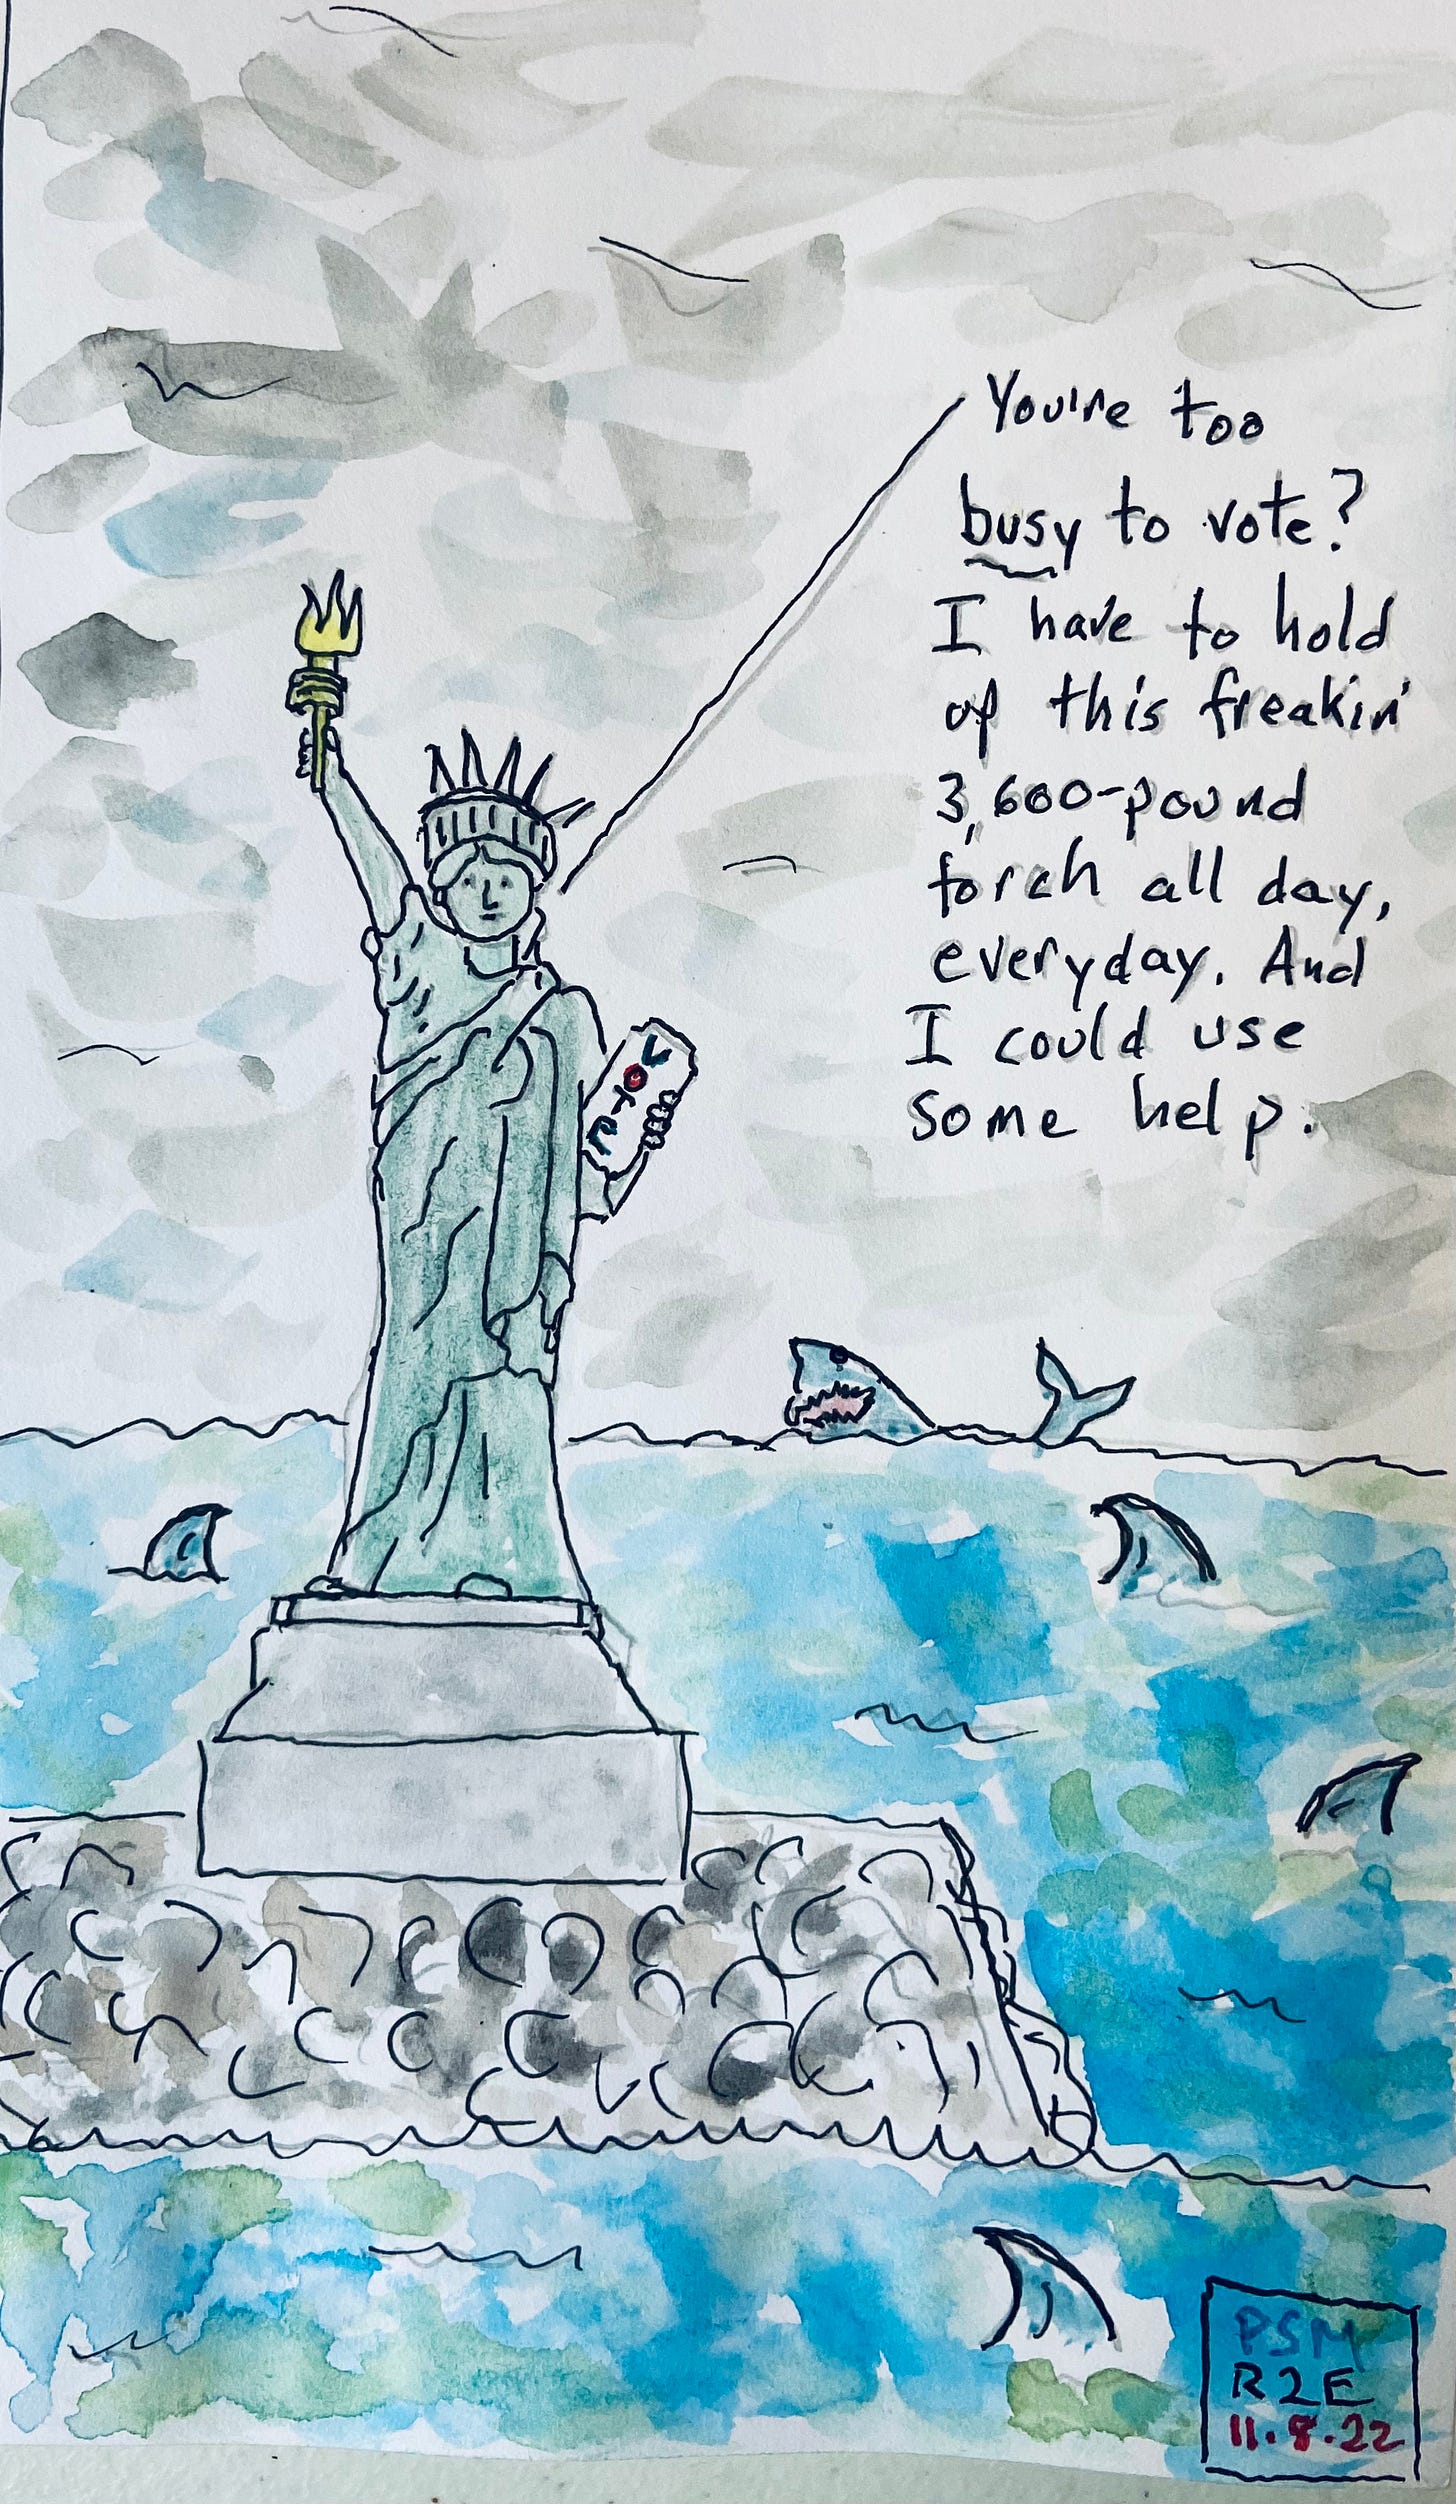 You're too
busy to vote?
I have to hold
up this freakin'
3,600-pound
torch all day,
everyday. And
I could use
some help.
VOTE
PSM
R2E
11.8.22